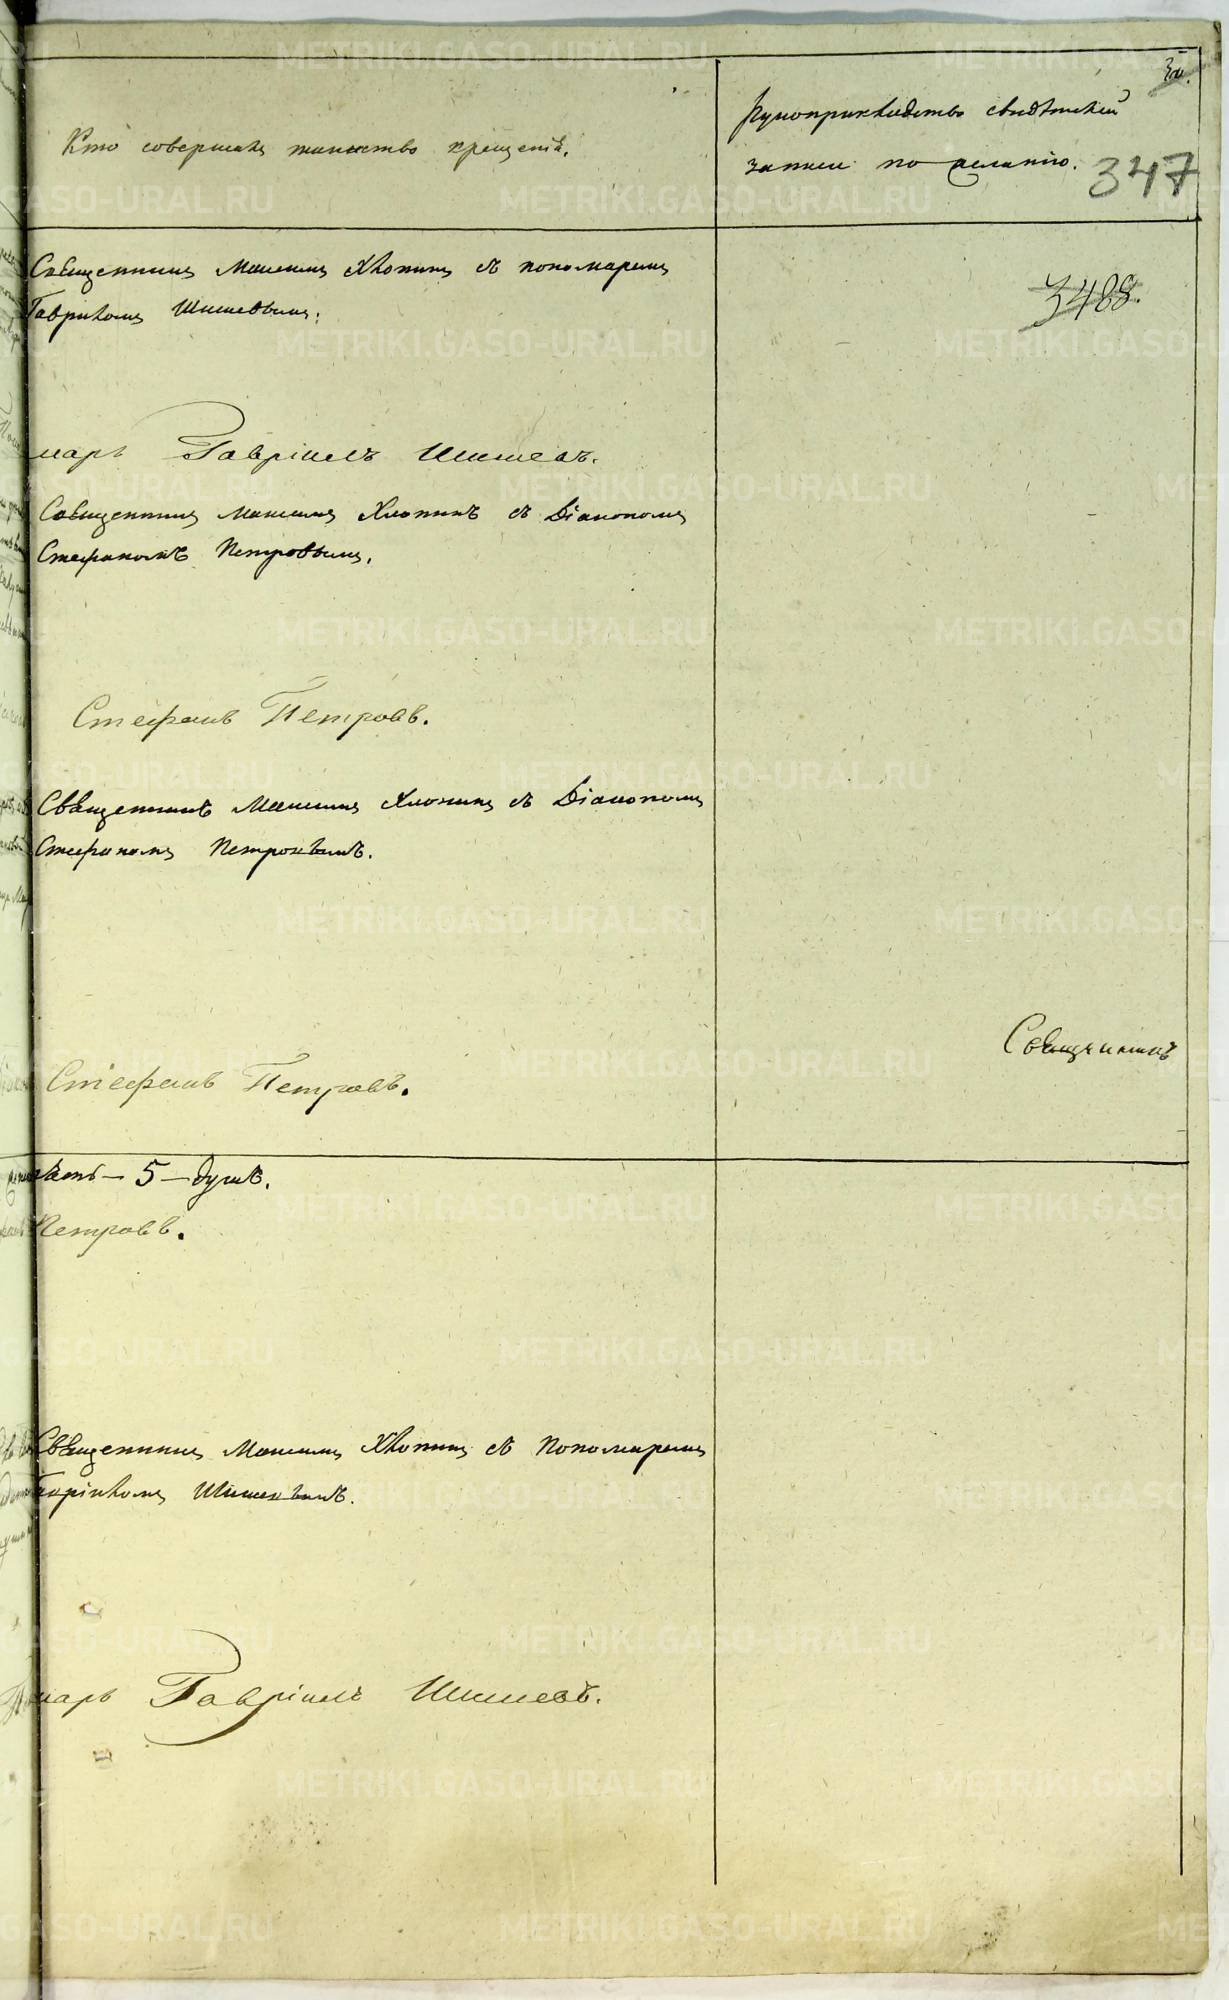 Кто совершалъ таинство крещенія.
Рукоприкладство свидѣтелей
записи по желанію.
347
Священникъ Максимъ Хлопинъ съ пономаремъ
Гавріиломъ Шишевымъ.
3488.
марь Гавріилъ Шишевъ.
Священникъ Максимъ Хлопинъ съ Діакономъ
Стефаномъ Петровымъ.
Стефанъ Петровъ.
Священникъ Максимъ Хлопинъ съ Діакономъ
Стефаномъ Петровымъ.
Священникъ
Стефанъ Петровъ.
5 — душъ.
Петровъ.
Священникъ Максимъ Хлопинъ съ Пономаремъ
Гавріиломъ Шишевымъ.
марь Гавріилъ Шишевъ.
METRIKI.GASO-URAL.RU